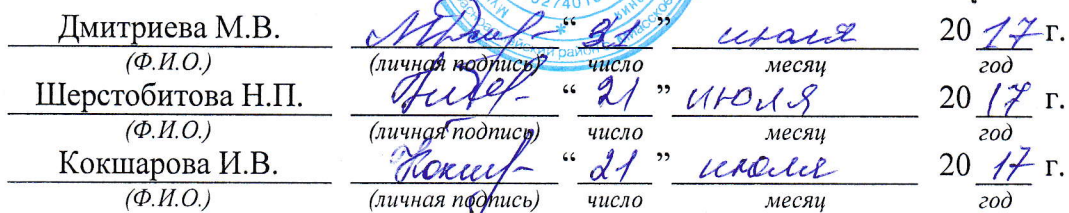 Дмитриева М.В. “ 21 ” июля 20 17 г.
(Ф.И.О.) (личная подпись) число месяц год
Шерстобитова Н.П. “ 21 ” июля 20 17 г.
(Ф.И.О.) (личная подпись) число месяц год
Кокшарова И.В. “ 21 ” июля 20 17 г.
(Ф.И.О.) (личная подпись) число месяц год